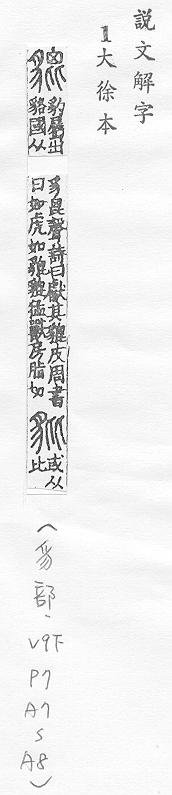 説文解字
1大徐本
貔 豹屬出
貉國从
豸𣬉聲詩曰獻其貔皮周書
曰如虎如貔貔猛獸房脂切
豼 或从
比
(豸部、
V9下
P7
A7
S
A8)